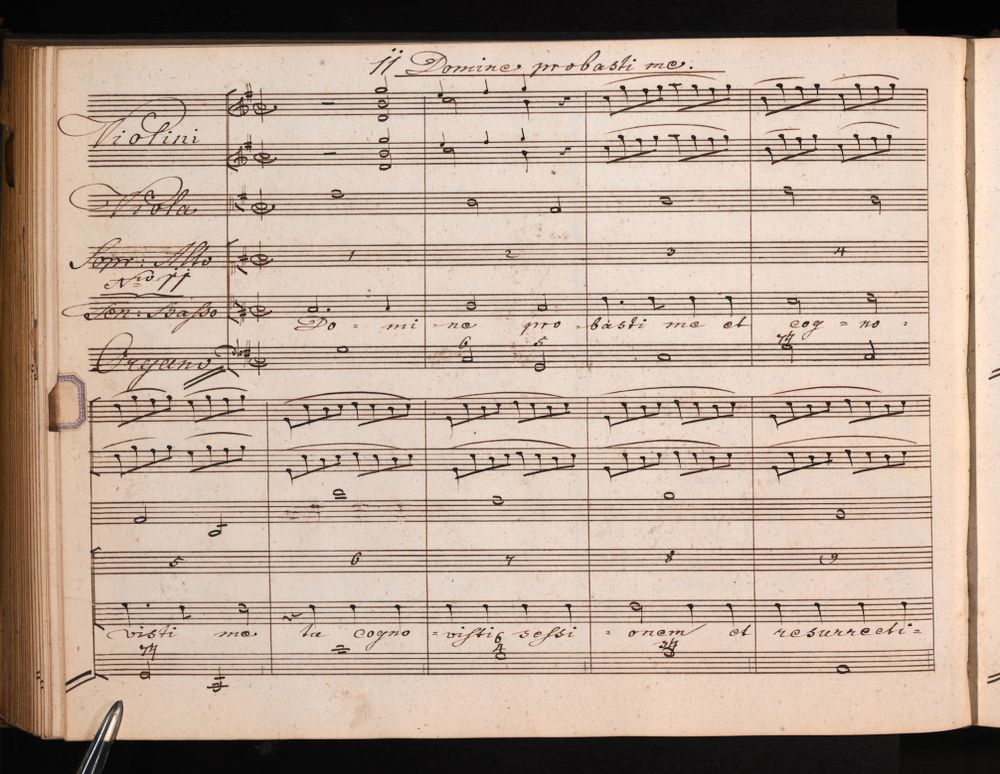 11 Domine probasti me.
Violini
Viola
Sopr: Alto
1 2 3 4
Nro 11
Ten: Basso
Do - mi - ne pro - basti me et cog - no -
6 5
Organo
5 6 7 8 9
visti me tu cogno - visti sessi - onem et resurrecti -
6